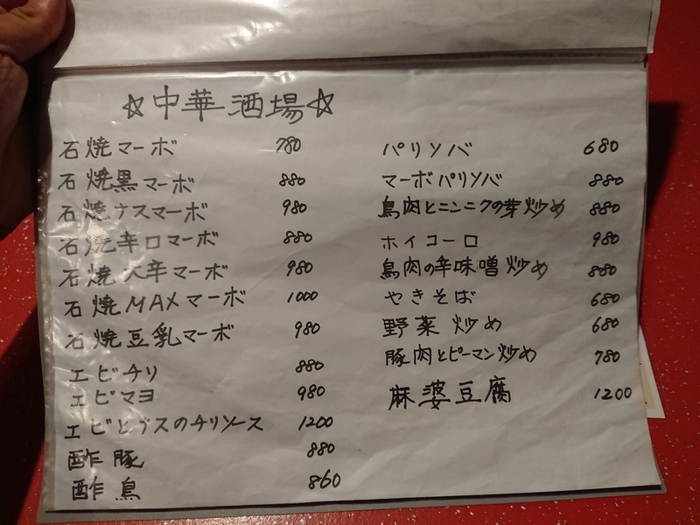 ☆中華酒場☆
石焼マーボ 780
石焼黒マーボ 880
石焼ナスマーボ 980
石焼辛口マーボ 880
石焼大辛マーボ 980
石焼MAXマーボ 1000
石焼豆乳マーボ 980
エビチリ 880
エビマヨ 980
エビとナスのチリソース 1200
酢豚 880
酢鳥 860
パリソバ 680
マーボパリソバ 880
鳥肉とニンニクの芽炒め 880
ホイコーロ 980
鳥肉の辛味噌炒め 880
やきそば 680
野菜炒め 680
豚肉とピーマン炒め 780
麻婆豆腐 1200